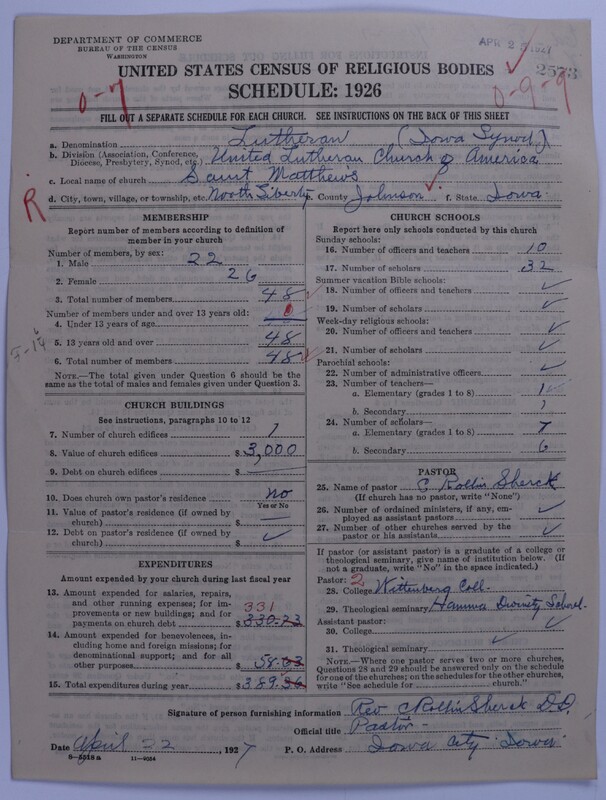 DEPARTMENT OF COMMERCE
BUREAU OF THE CENSUS
WASHINGTON
APR 2 1927
2573
UNITED STATES CENSUS OF RELIGIOUS BODIES
SCHEDULE: 1926
0-7
0-9-9
FILL OUT A SEPARATE SCHEDULE FOR EACH CHURCH. SEE INSTRUCTIONS ON THE BACK OF THIS SHEET
a. Denomination Lutheran (Iowa Synod)
b. Division (Association, Conference, Diocese, Presbytery, Synod, etc.) United Lutheran Church of America
c. Local name of church Saint Matthews
d. City, town, village, or township, etc. North Liberty e. County Johnson f. State Iowa
R
MEMBERSHIP
Report number of members according to definition of member in your church
Number of members, by sex:
1. Male 22
2. Female 26
3. Total number of members 48
Number of members under and over 13 years old:
4. Under 13 years of age 0
5. 13 years old and over 48
6. Total number of members 48
NOTE.—The total given under Question 6 should be the same as the total of males and females given under Question 3.
CHURCH BUILDINGS
See instructions, paragraphs 10 to 12
7. Number of church edifices 1
8. Value of church edifices $3,000
9. Debt on church edifices $
10. Does church own pastor's residence No
Yes or No
11. Value of pastor's residence (if owned by church) $ —
12. Debt on pastor's residence (if owned by church) $ ✓
EXPENDITURES
Amount expended by your church during last fiscal year
13. Amount expended for salaries, repairs, and other running expenses; for improvements or new buildings; and for payments on church debt $330.73
331
14. Amount expended for benevolences, including home and foreign missions; for denominational support; and for all other purposes $58.63
15. Total expenditures during year $389.36
CHURCH SCHOOLS
Report here only schools conducted by this church
Sunday schools:
16. Number of officers and teachers 10
17. Number of scholars 32
Summer vacation Bible schools:
18. Number of officers and teachers ✓
19. Number of scholars ✓
Week-day religious schools:
20. Number of officers and teachers ✓
21. Number of scholars ✓
Parochial schools:
22. Number of administrative officers ✓
23. Number of teachers—
a. Elementary (grades 1 to 8)
b. Secondary
24. Number of scholars—
a. Elementary (grades 1 to 8)
b. Secondary
PASTOR
25. Name of pastor C Rollin Sherck
(If church has no pastor, write "None")
26. Number of ordained ministers, if any, employed as assistant pastors ✓
27. Number of other churches served by the pastor or his assistants ✓
If pastor (or assistant pastor) is a graduate of a college or theological seminary, give name of institution below. (If not a graduate, write "No" in the space indicated.)
Pastor: 2
28. College Wittenberg Coll.
29. Theological seminary Hamma Divinity School.
Assistant pastor:
30. College ✓
31. Theological seminary ✓
NOTE.—Where one pastor serves two or more churches, Questions 28 and 29 should be answered only on the schedule for one of the churches; on the schedules for the other churches, write "See schedule for church."
Signature of person furnishing information Rev C Rollin Sherck D.D.
Official title Pastor
Date April 22, 1927 P. O. Address Iowa City Iowa
8-5318a 11-9054